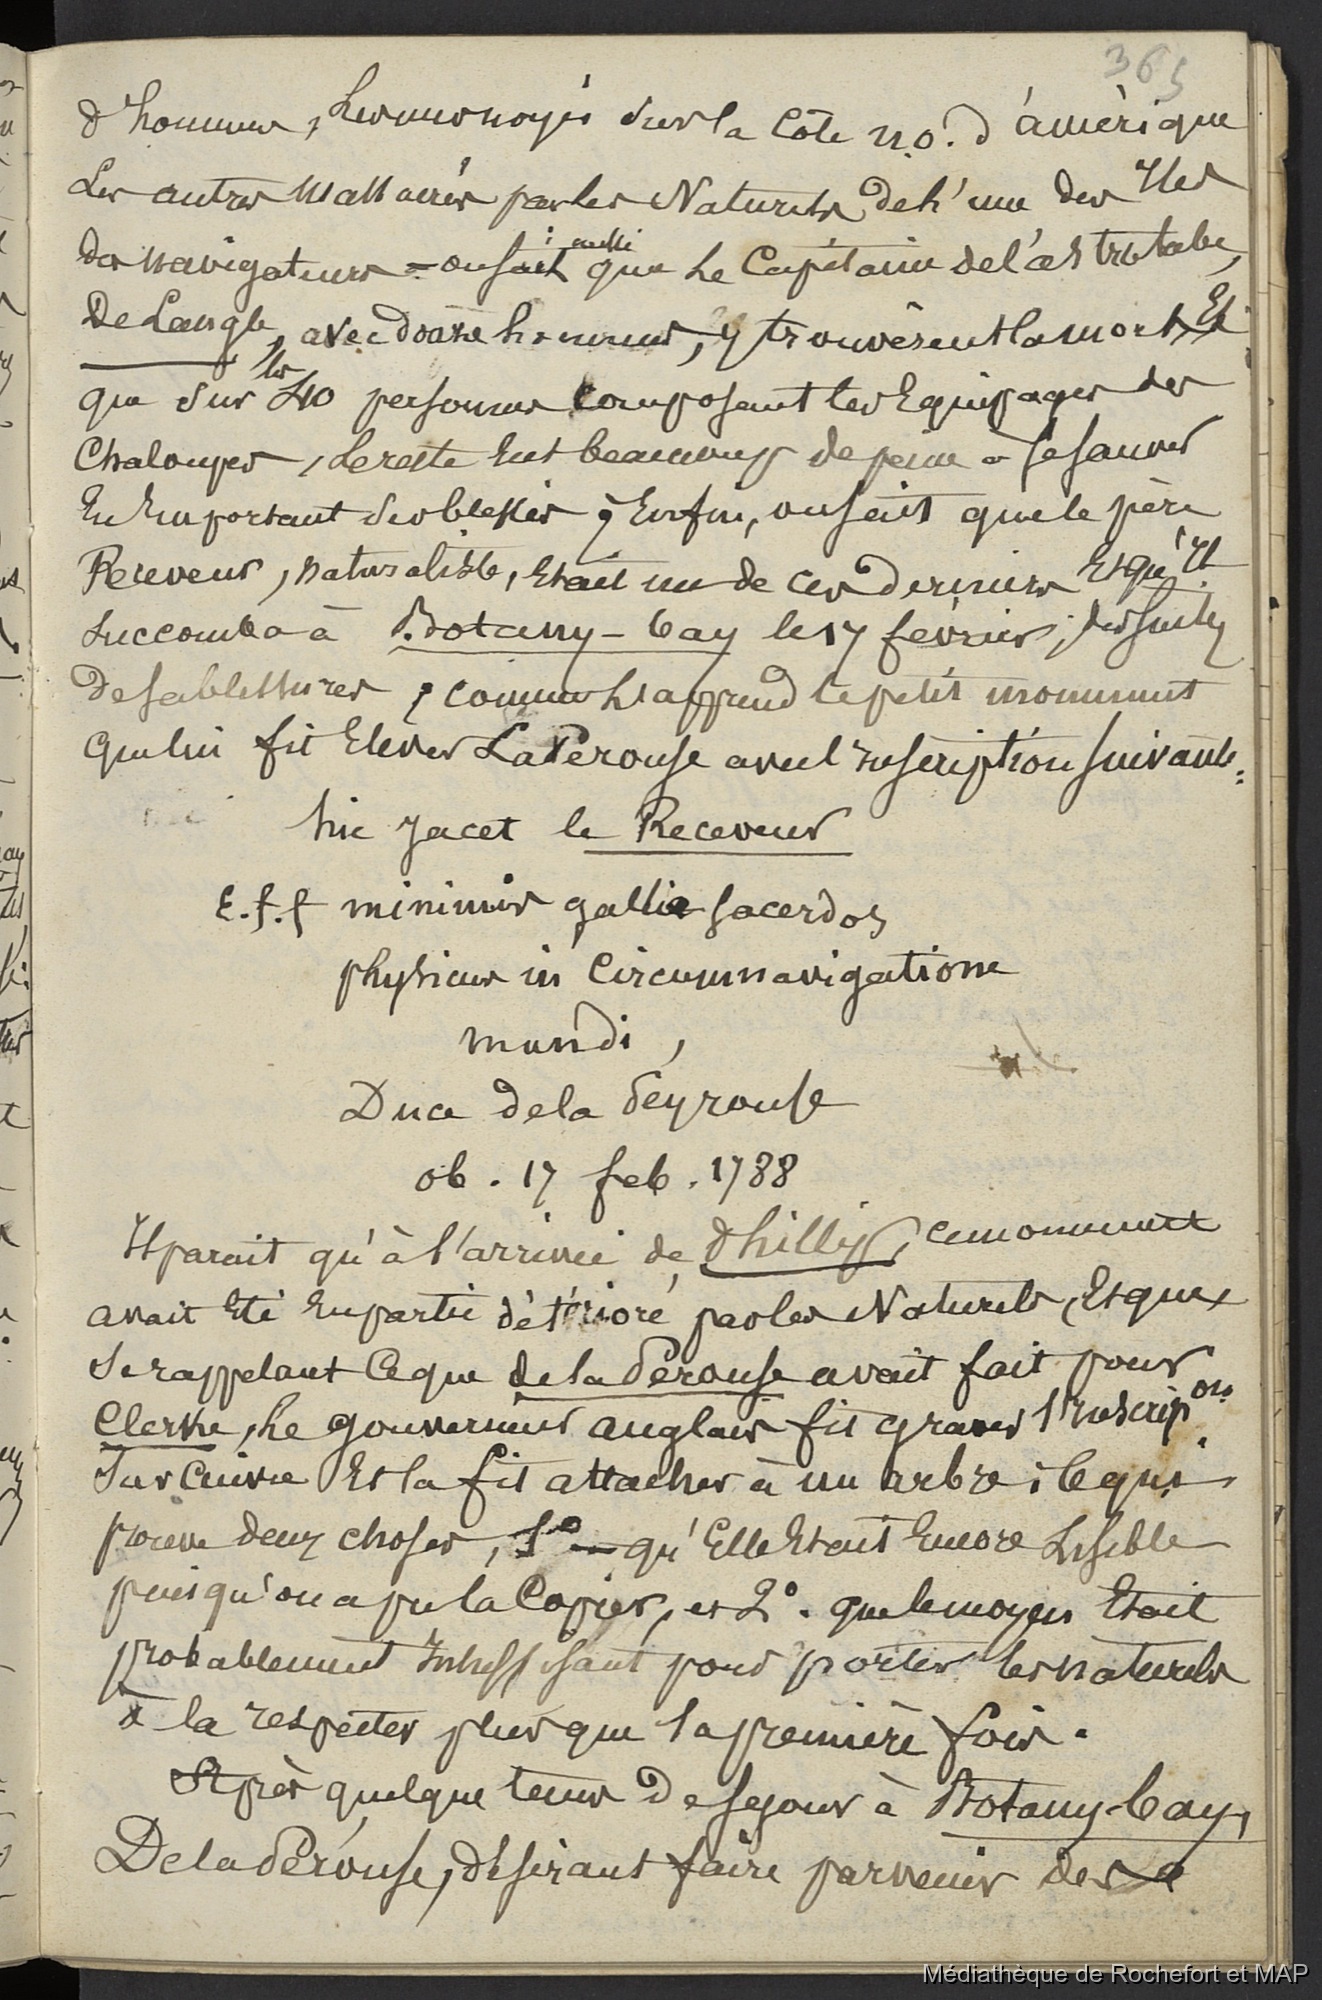 365
d'hommes, les uns noyés sur la Côte n.o. d'amérique
Les autres massacrés par les Naturels de l'une des Iles
des navigateurs = on sait aussi que le Capitaine de l'astrolabe,
De Langle, avec douze hommes, y trouvèrent la mort, Et
que sur les 40 personnes composant les Equipages des
Chaloupes, le reste Eut beaucoup de peine à se sauver
En Emportant ses blessés ; Enfin, on sait que le père
Receveur, naturaliste, Etait un de ces derniers Et qu'Il
succomba à Botany-bay le 17 février, des suites
de ses blessures ; comme l'apprend le petit monument
que lui fit Elever La Pérouse avec l'Inscription suivante :
hic Jacet le Receveur
E. f. f minimis galliae sacerdos
physicus in Circumnavigatione
mundi,
Duce de la Peyrouse
ob. 17 feb. 1788
Il parait qu'à l'arrivée de Phillip, ce monument
avait Eté En partie détérioré par les Naturels, Et que
se rappelant Ce que de la Pérouse avait fait pour
Clerke, le gouverneur anglais fit graver l'Inscripon.
sur cuivre Et la fit attacher à un arbre ; Ce qui
prouve deux choses, 1º — qu'Elle Etait Encore Lisible
puisqu'on a pu la Copier, et 2º. que le moyen Etait
probablement Insuffisant pour porter les naturels
à la respecter plus que la première fois.
Après quelque tems De sejour à Botany-bay,
De la Pérouse, désirant faire parvenir des
Médiathèque de Rochefort et MAP